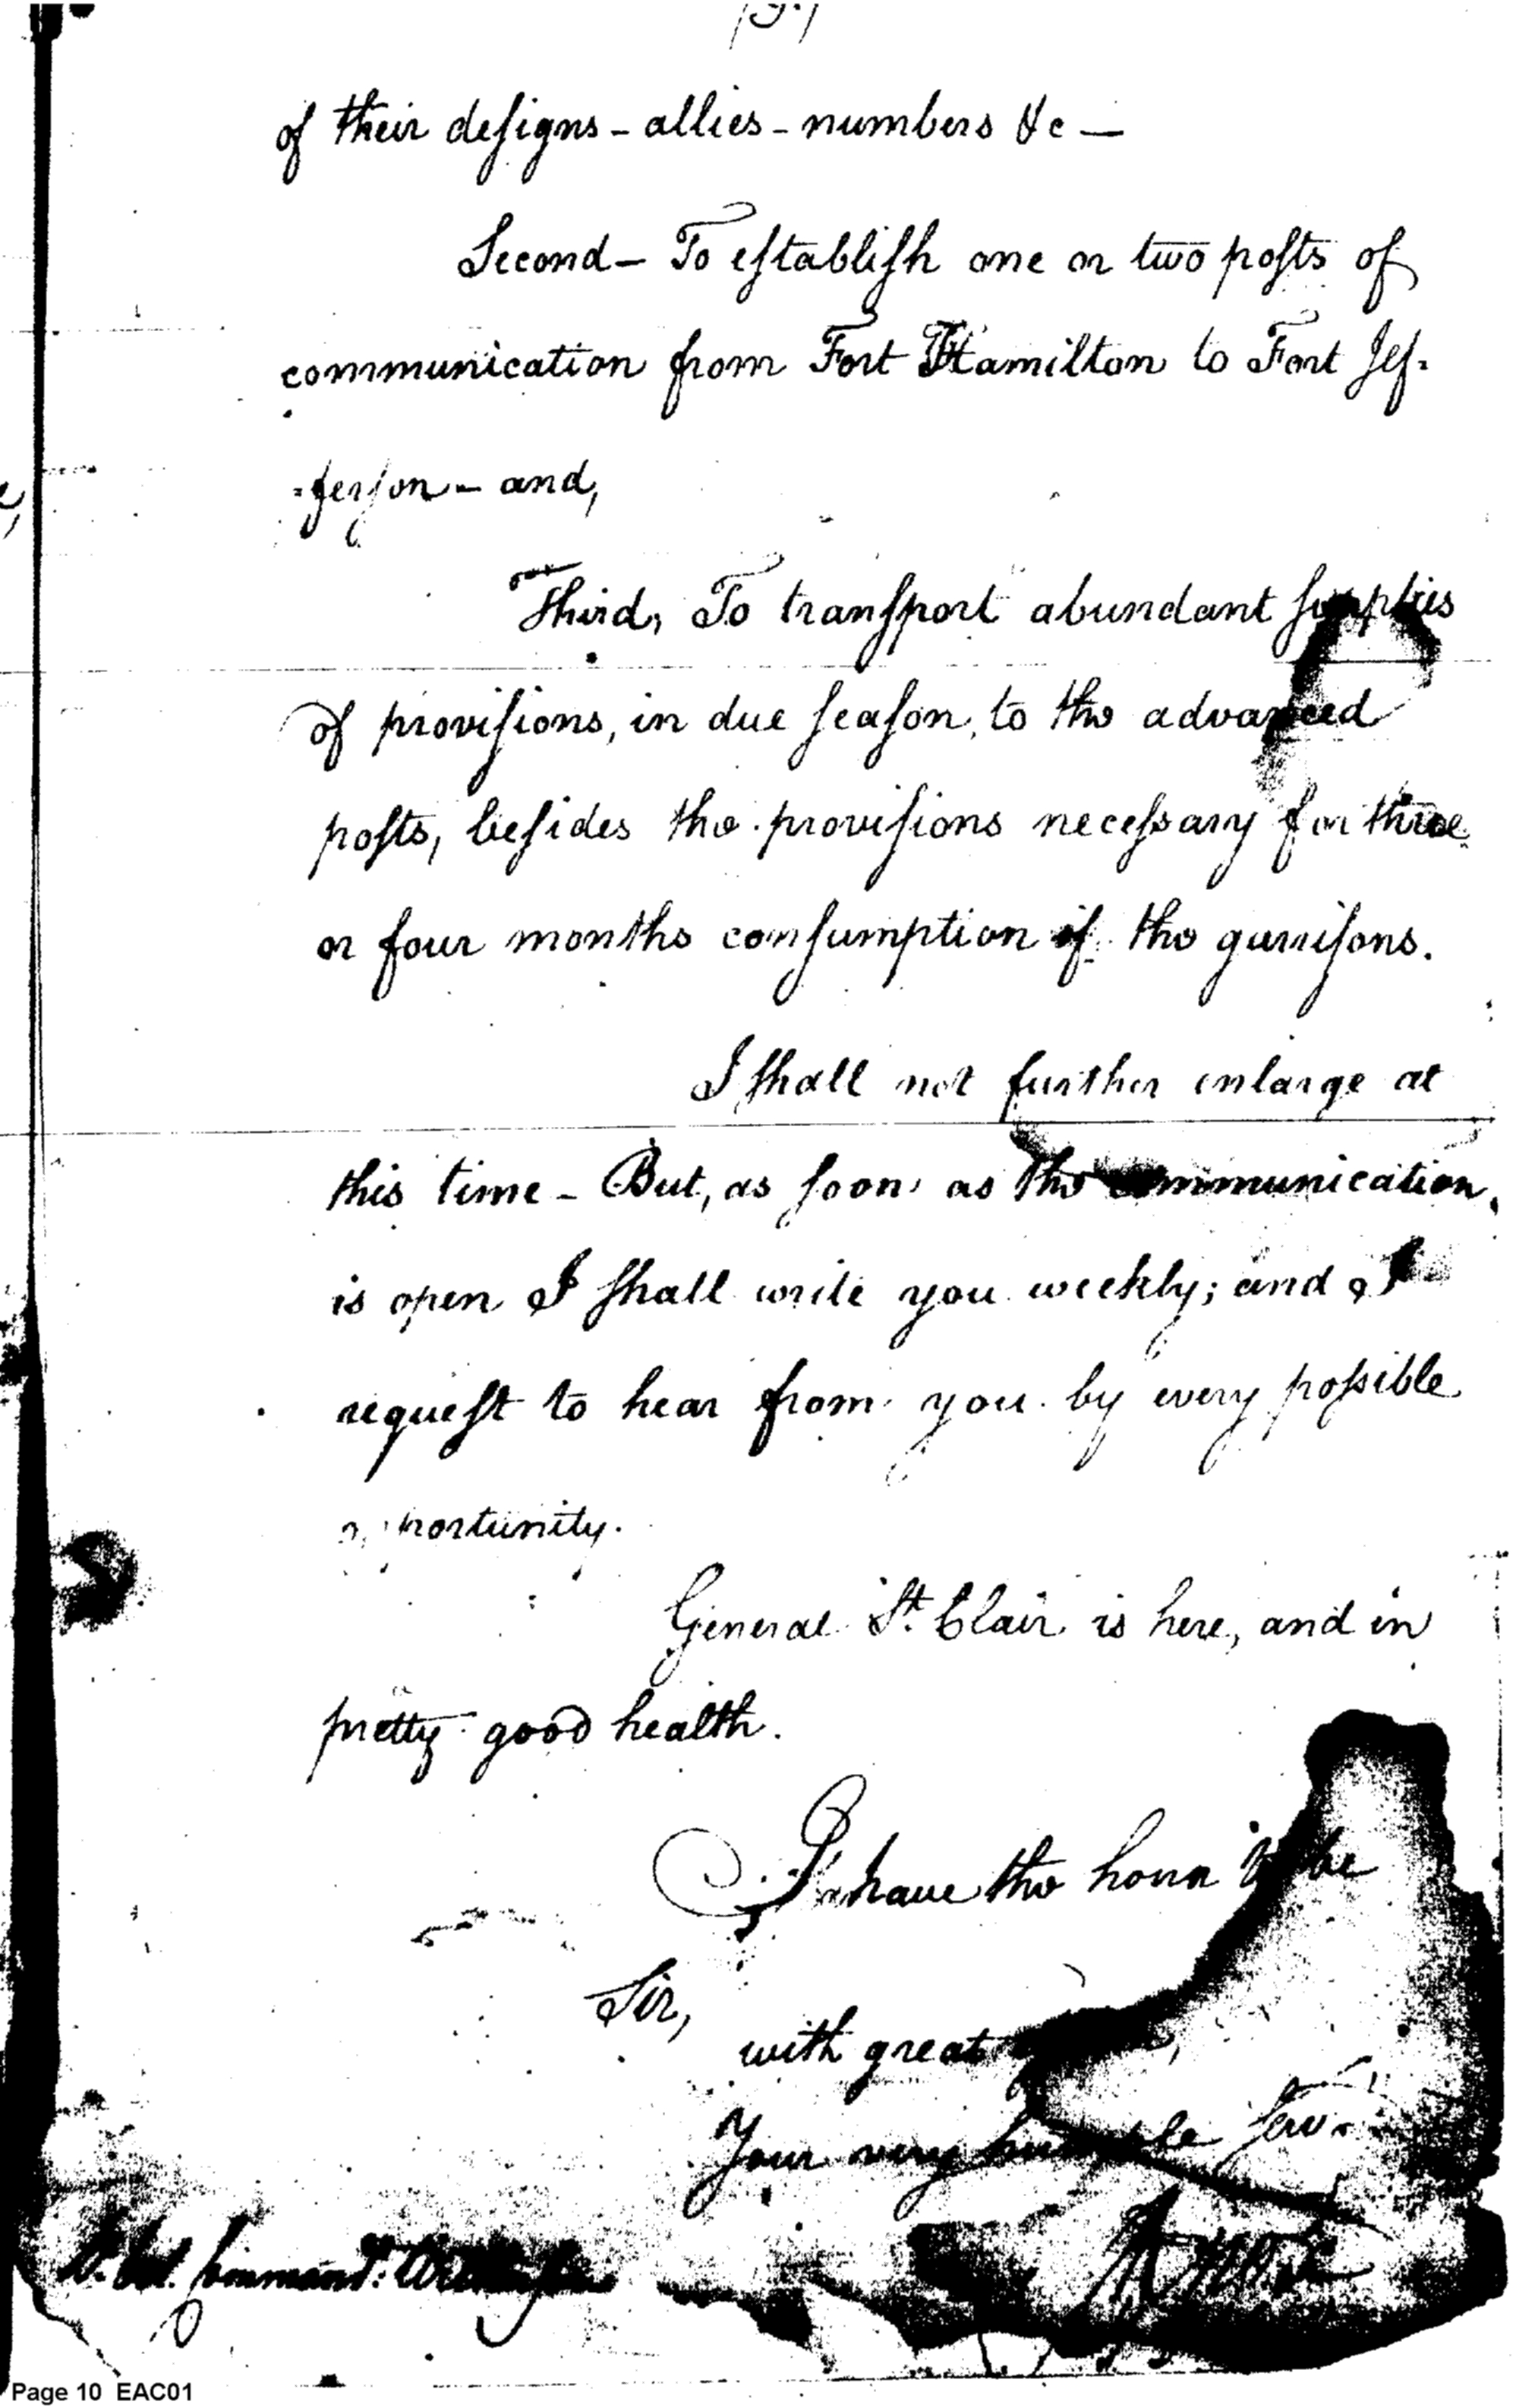 of their designs - allies - numbers &c —
Second - To establish one or two posts of
communication from Fort Hamilton to Fort Jef=
=ferson - and,
Third, To transport abundant supplies
of provisions, in due season, to the advanced
posts, besides the provisions necessary for three
or four months consumption of the garrisons.
I shall not further enlarge at
this time - But, as soon as the communication
is open I shall write you weekly; and I
request to hear from you by every possible
opportunity.
General St. Clair is here, and in
pretty good health.
I have the honor to be
Sir,
with great
Your very humble Serv.
Lt. Col. Command.t
Page 10 EAC01